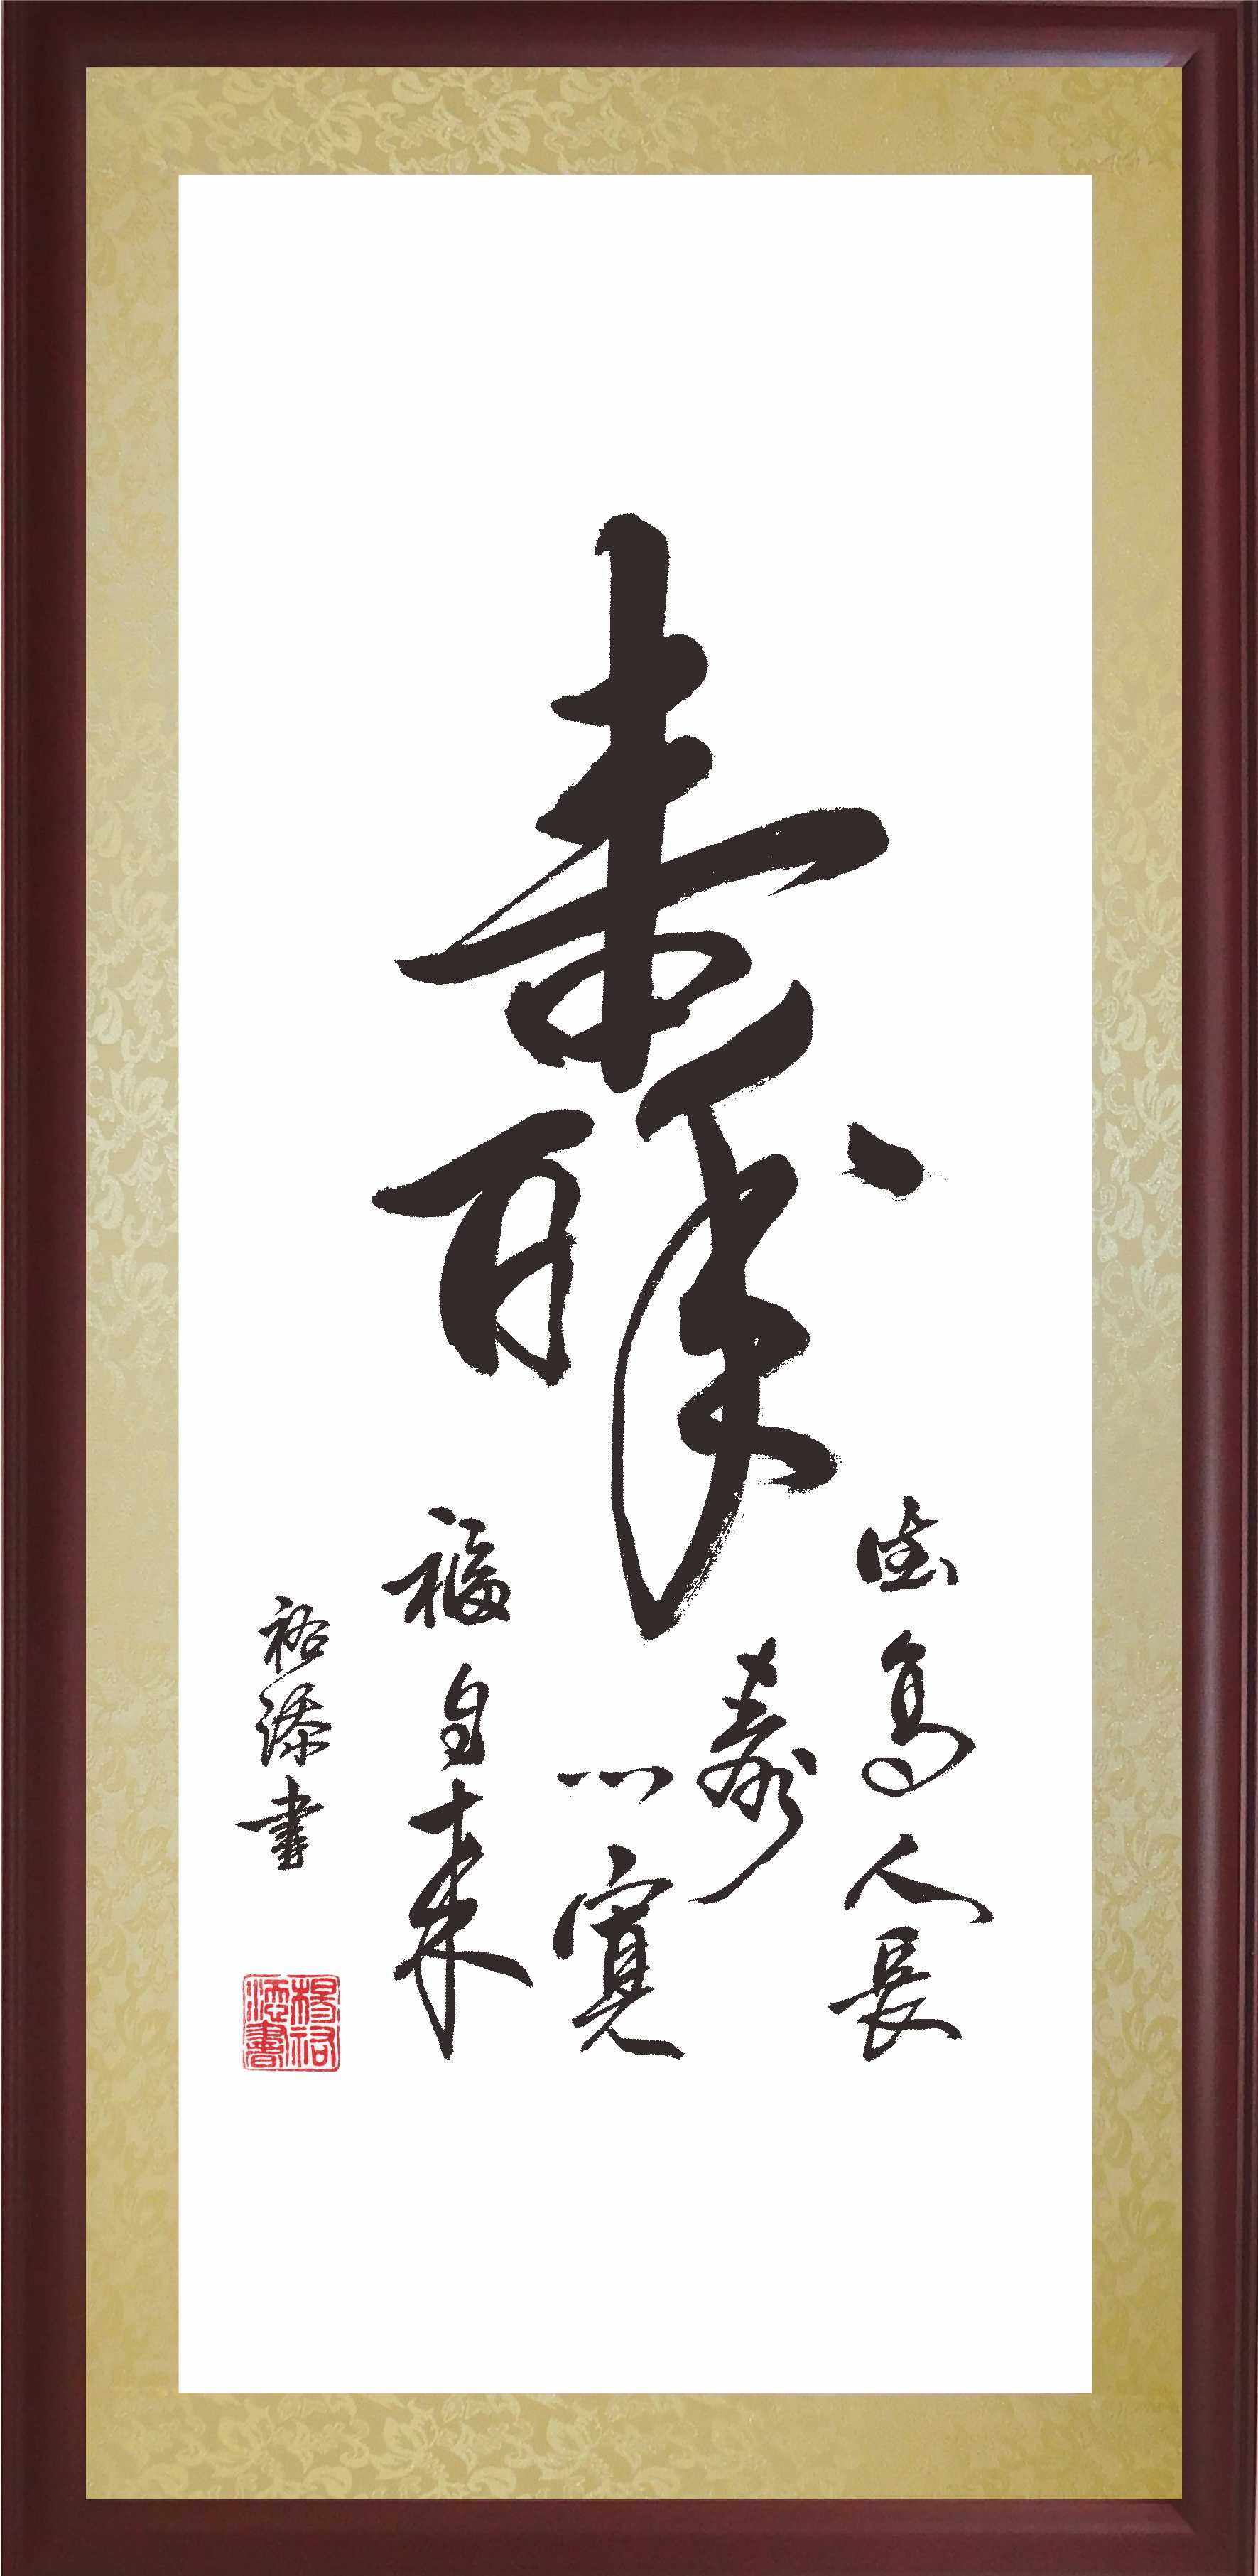 壽
悳高人長
壽
心寬
福自来
祐添書
楊祐
添書